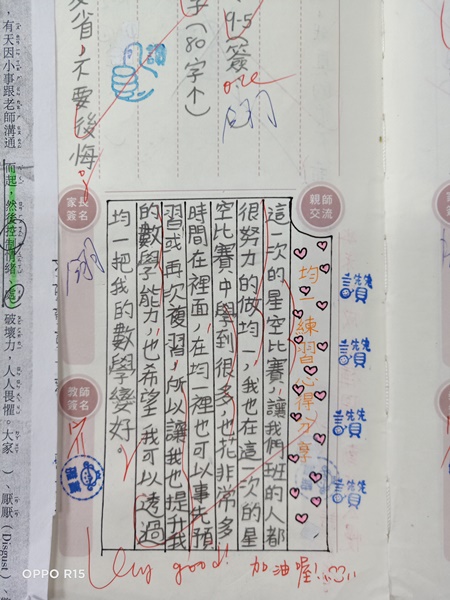 有天因小事跟老師溝通
而起，然後控制情緒，
破壞力，人人畏懼。大家
）、厭厭(Disgust)、
省，不要後悔。
(80字↑)
9-5(簽
讚
親師
交流
家長
簽名
教師
簽名
均一練習心得分享
這一次的星空比賽，讓我們班的人都
很努力的做均一，我也在這一次的星
空比賽中學到很多也花非常多
時間在裡面，在均一裡也可以事先預
習或再次複習，所以讓我也提升我
的數學能力，也希望我可以透過
均一把我的數學變好。
讚
讚
讚
讚
Very good! 加油喔!
OPPO R15